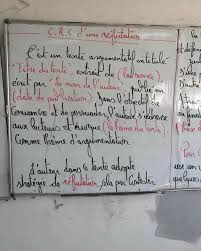 C.R.C d'une réfutation
C'est un texte argumentatif intitulé
"Titre du texte", extrait de (la source)
écrit par de nom de l'auteur, publié en
(date de publication) Dans l'objectif de
convaincre et de persuader l'auteur s'adresse
aux lecteurs et évoque (le thème du texte)
Comme thème d'argumentation.
L'auteur dans ce texte adopte
stratégie de réfutation